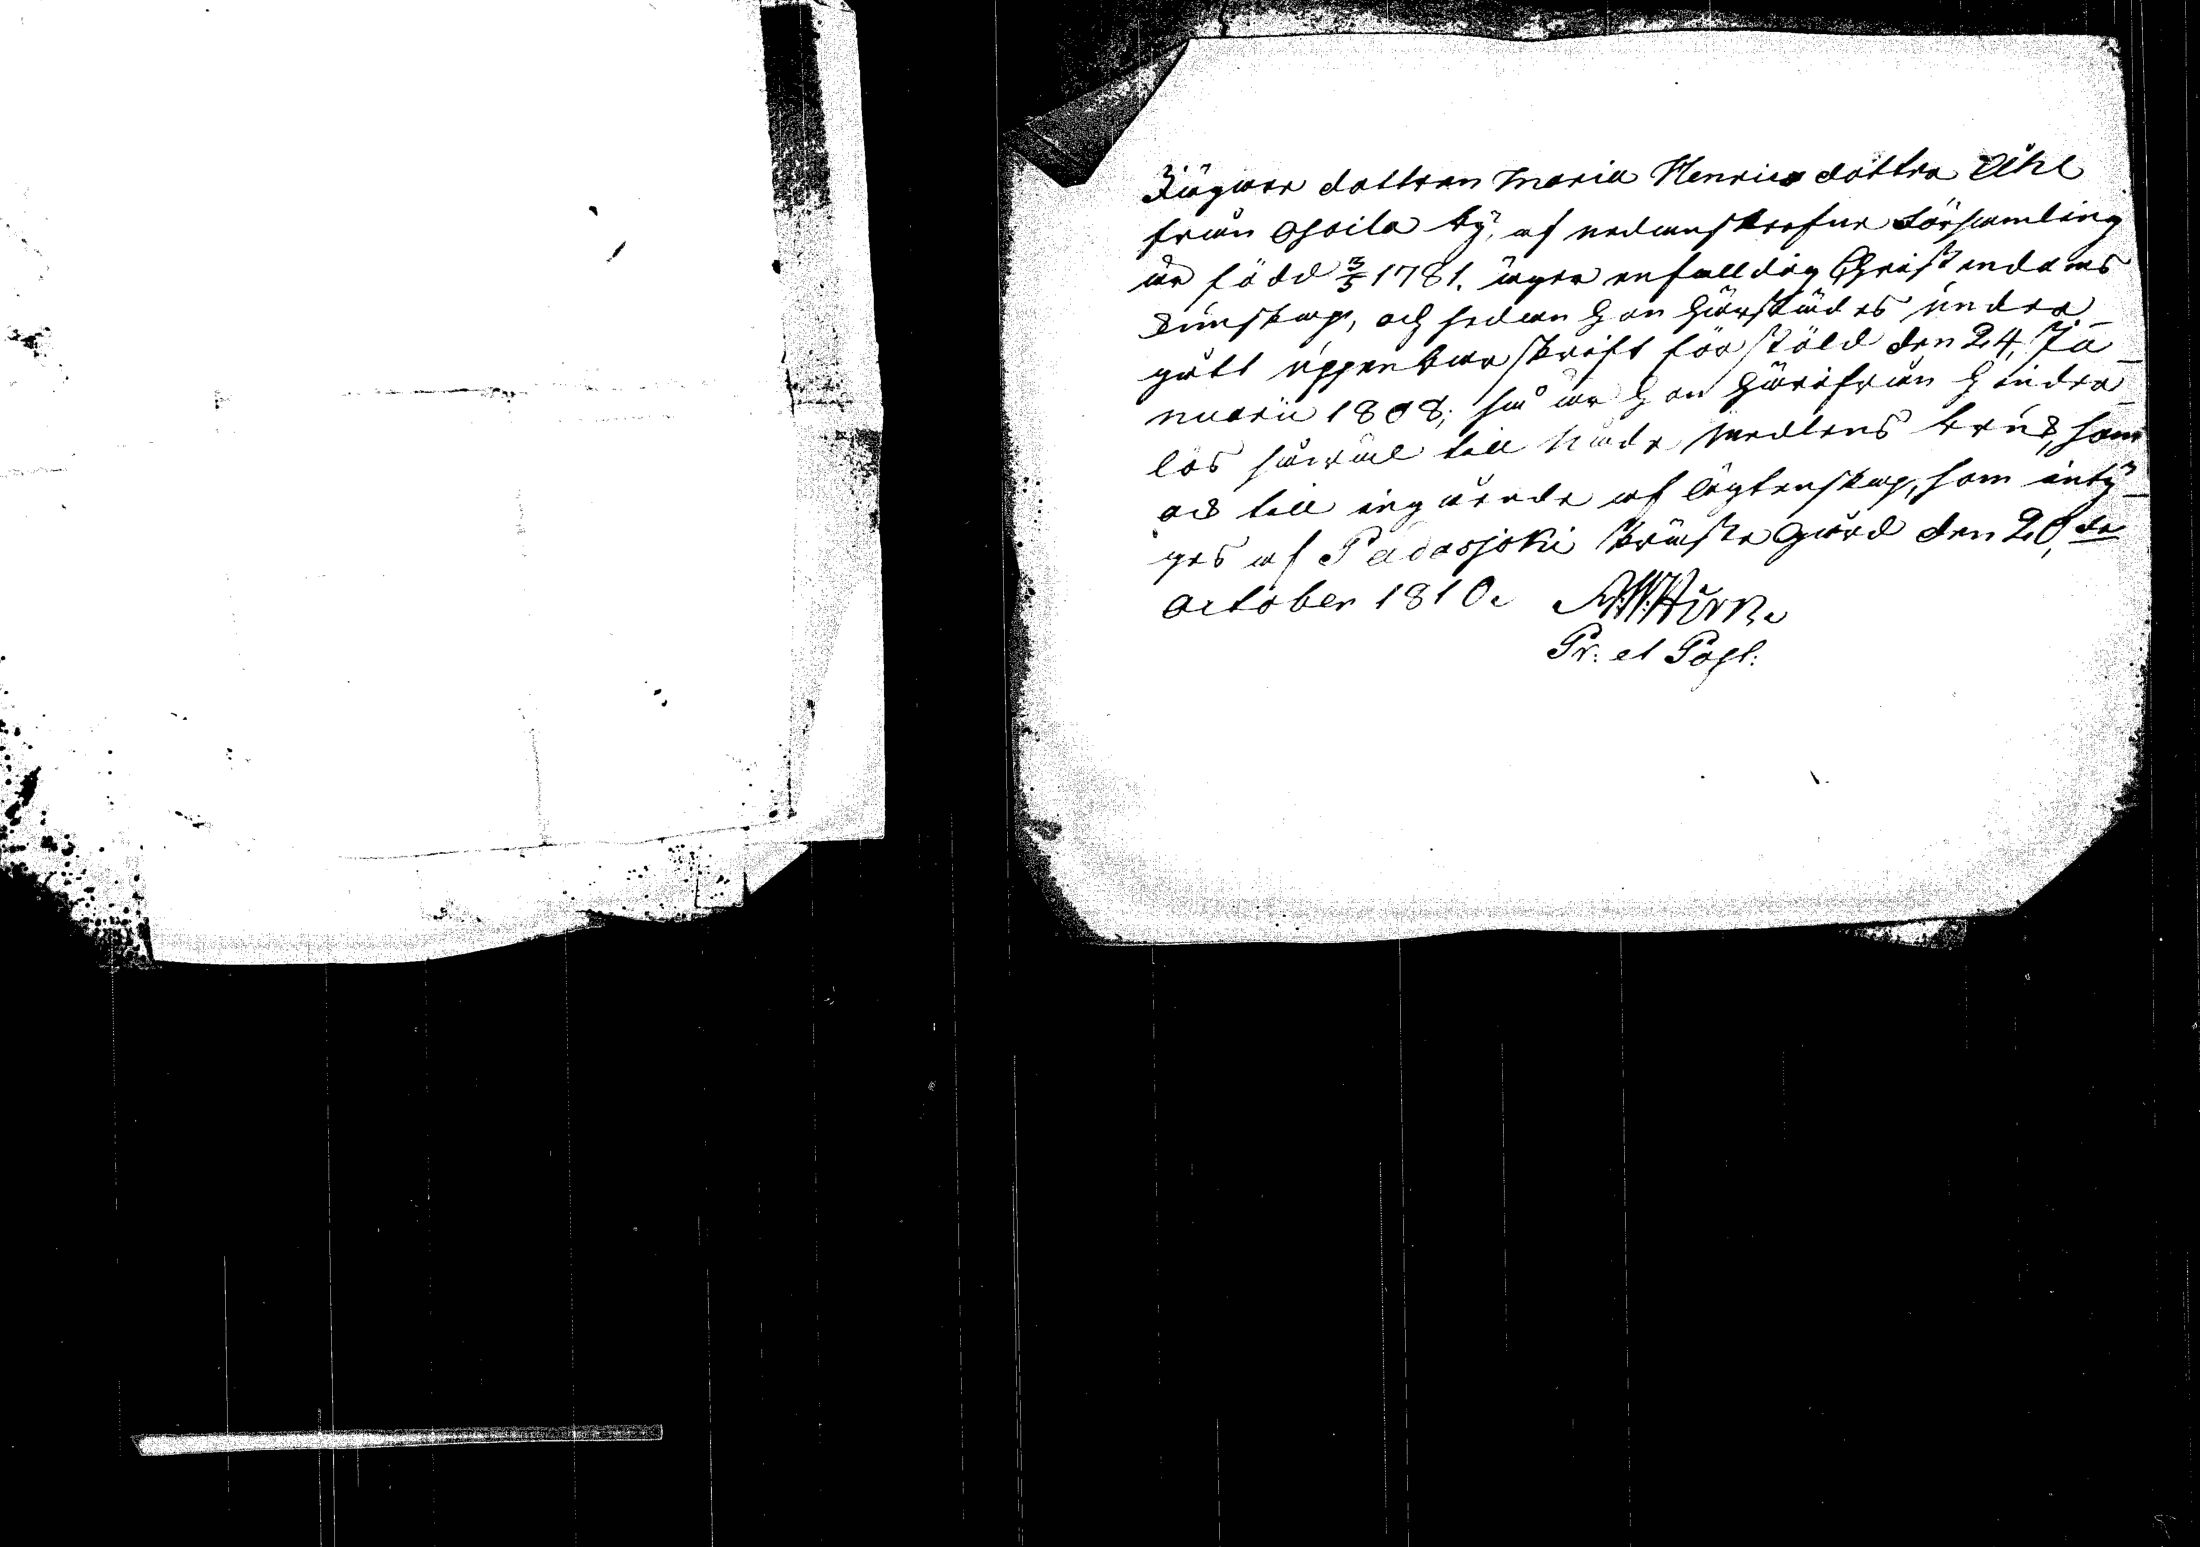 Jägar dottren Maria Henrics dotter Ståhl
från Osoila by, af nedanskrefne Församling
är född 3/5 1781. äger enfalldig Christendoms
kunskap, och sedan hon härstädes under_
gått uppenbar skrift för stöld den 24 Ja_
nuarii 1808; så är hon härifrån hinder_
lös såwäl till Nåde medlens bruk, som
ock till ingående af ägtenskap, som inty_
ges af Padasjoki Präste Gård den 20,de
October 1810.
Pr: et Past: